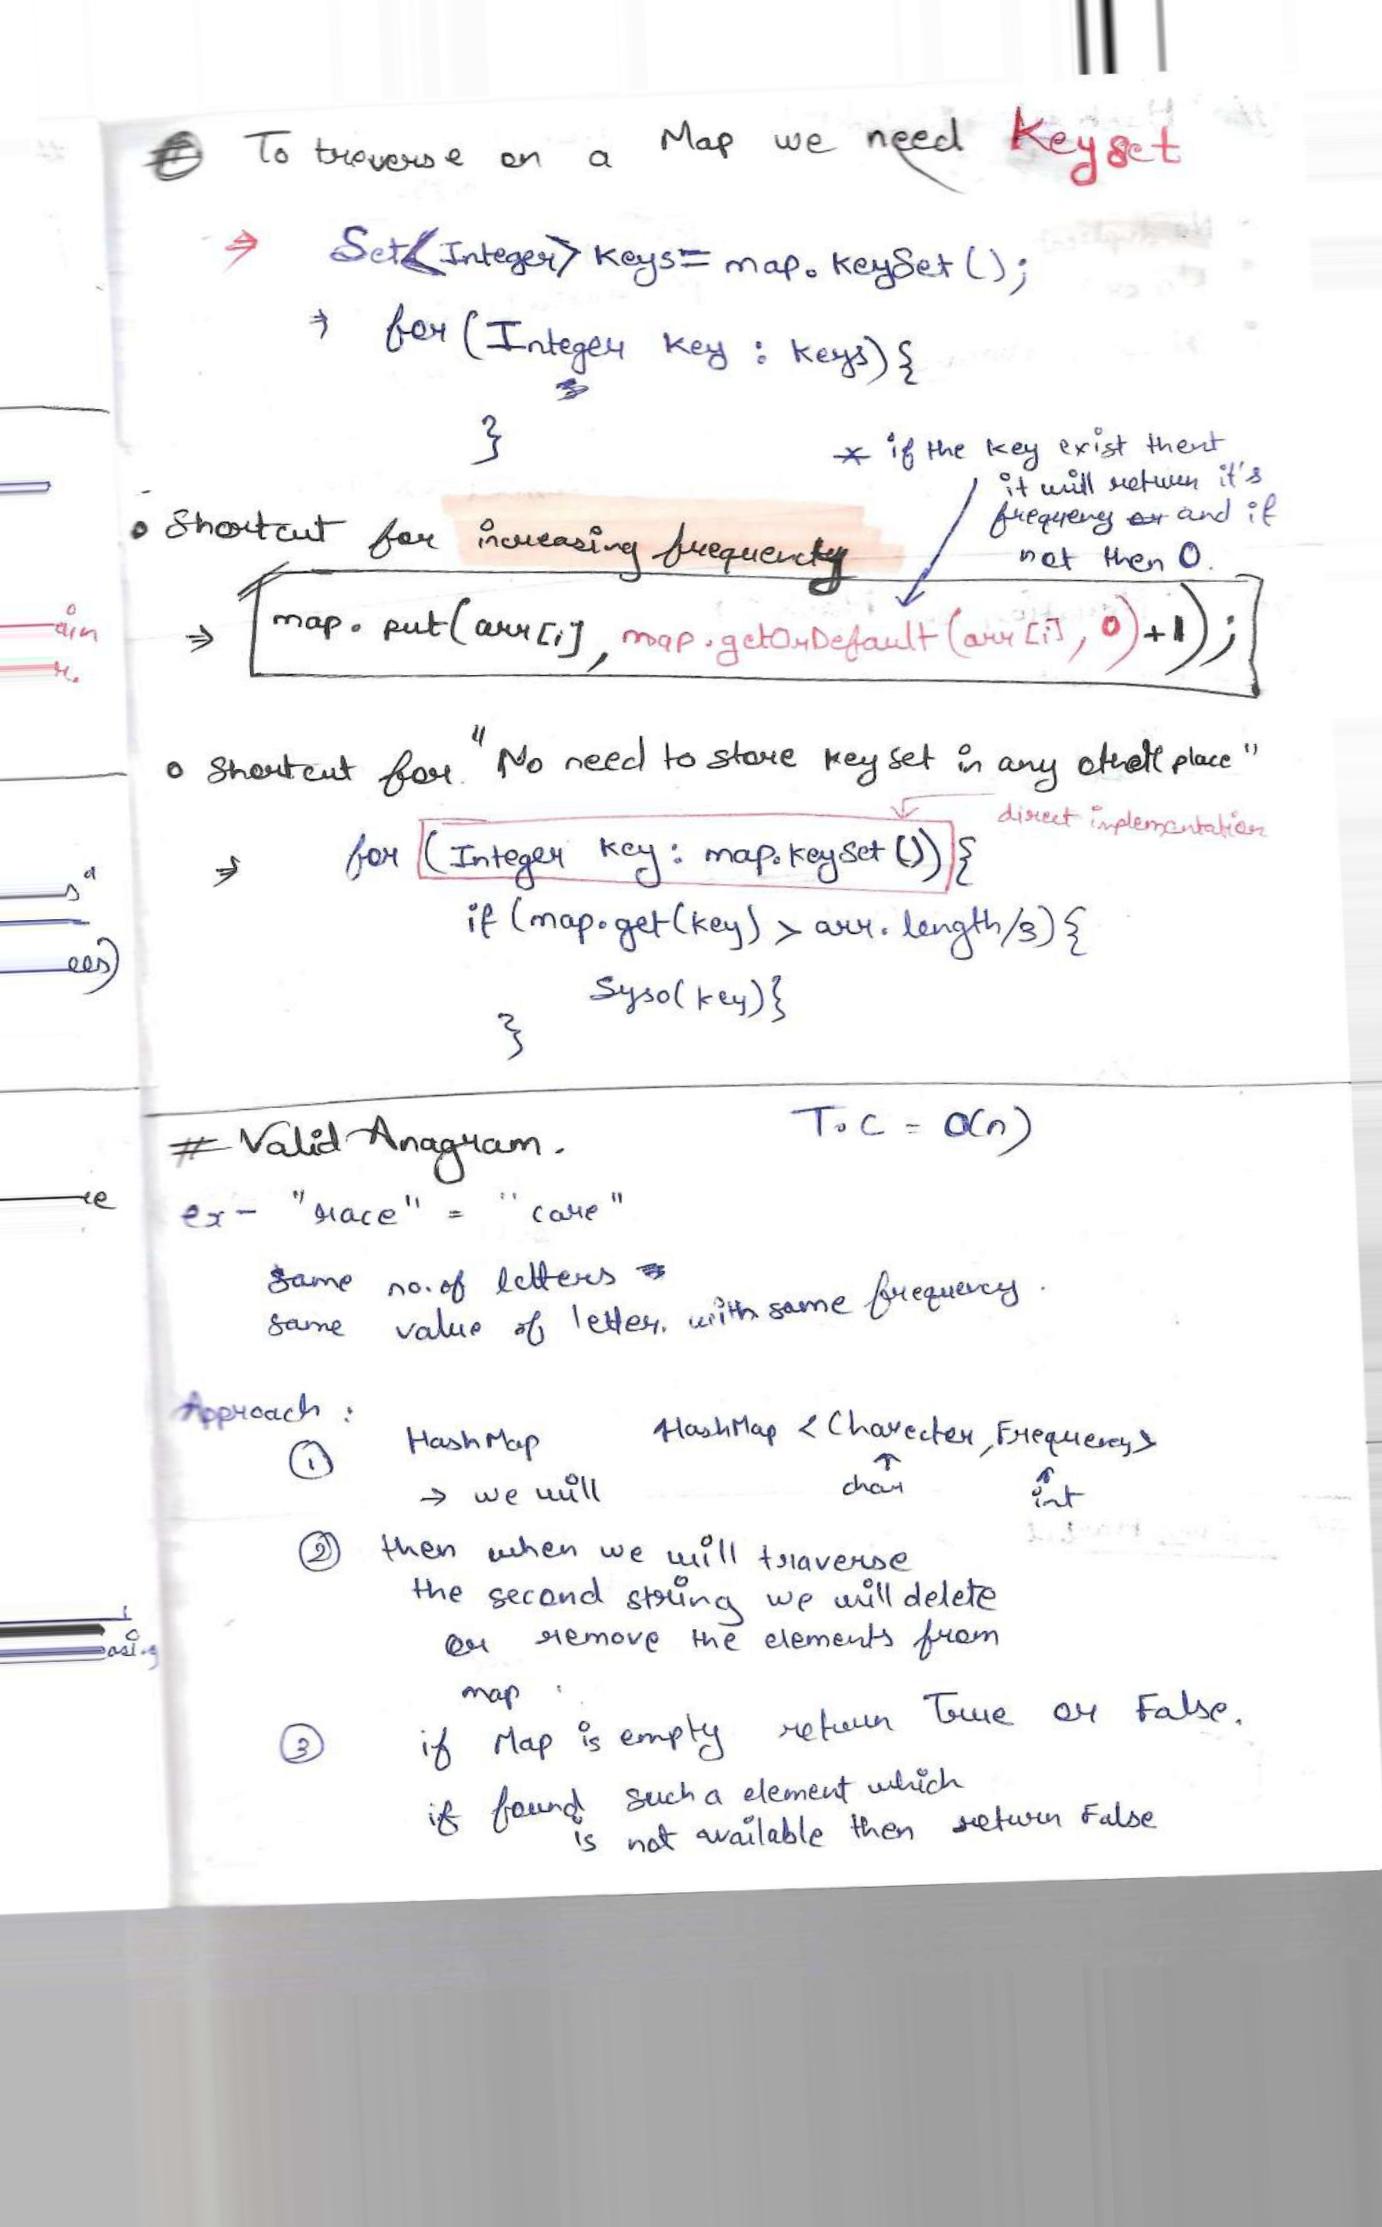 # To traverse on a Map we need Keyset
⇒ Set<Integer> keys = map.keySet();
⇒ for (Integer key : keys) {
}
* if the key exist then it
it will return it's
frequency and if
not then 0.
• Shortcut for increasing frequency
⇒ map.put(arr[i], map.getOrDefault(arr[i], 0)+1);
• Shortcut for "No need to store keyset in any other place"
direct implementation
⇒ for (Integer key : map.keySet()) {
if (map.get(key) > arr.length/3) {
Syso(key)}
}
# Valid Anagram. T.C = O(n)
ex - "race" = "care"
same no. of letters
same value of letter. with same frequency.
Approach :
① HashMap HashMap < Charecter, Frequency>
→ we will char int
② then when we will traverse
the second string we will delete
or remove the elements from
map
③ if Map is empty return True or False.
if found such a element which
is not available then return False
ain
r.
s"
ees)
re
asing